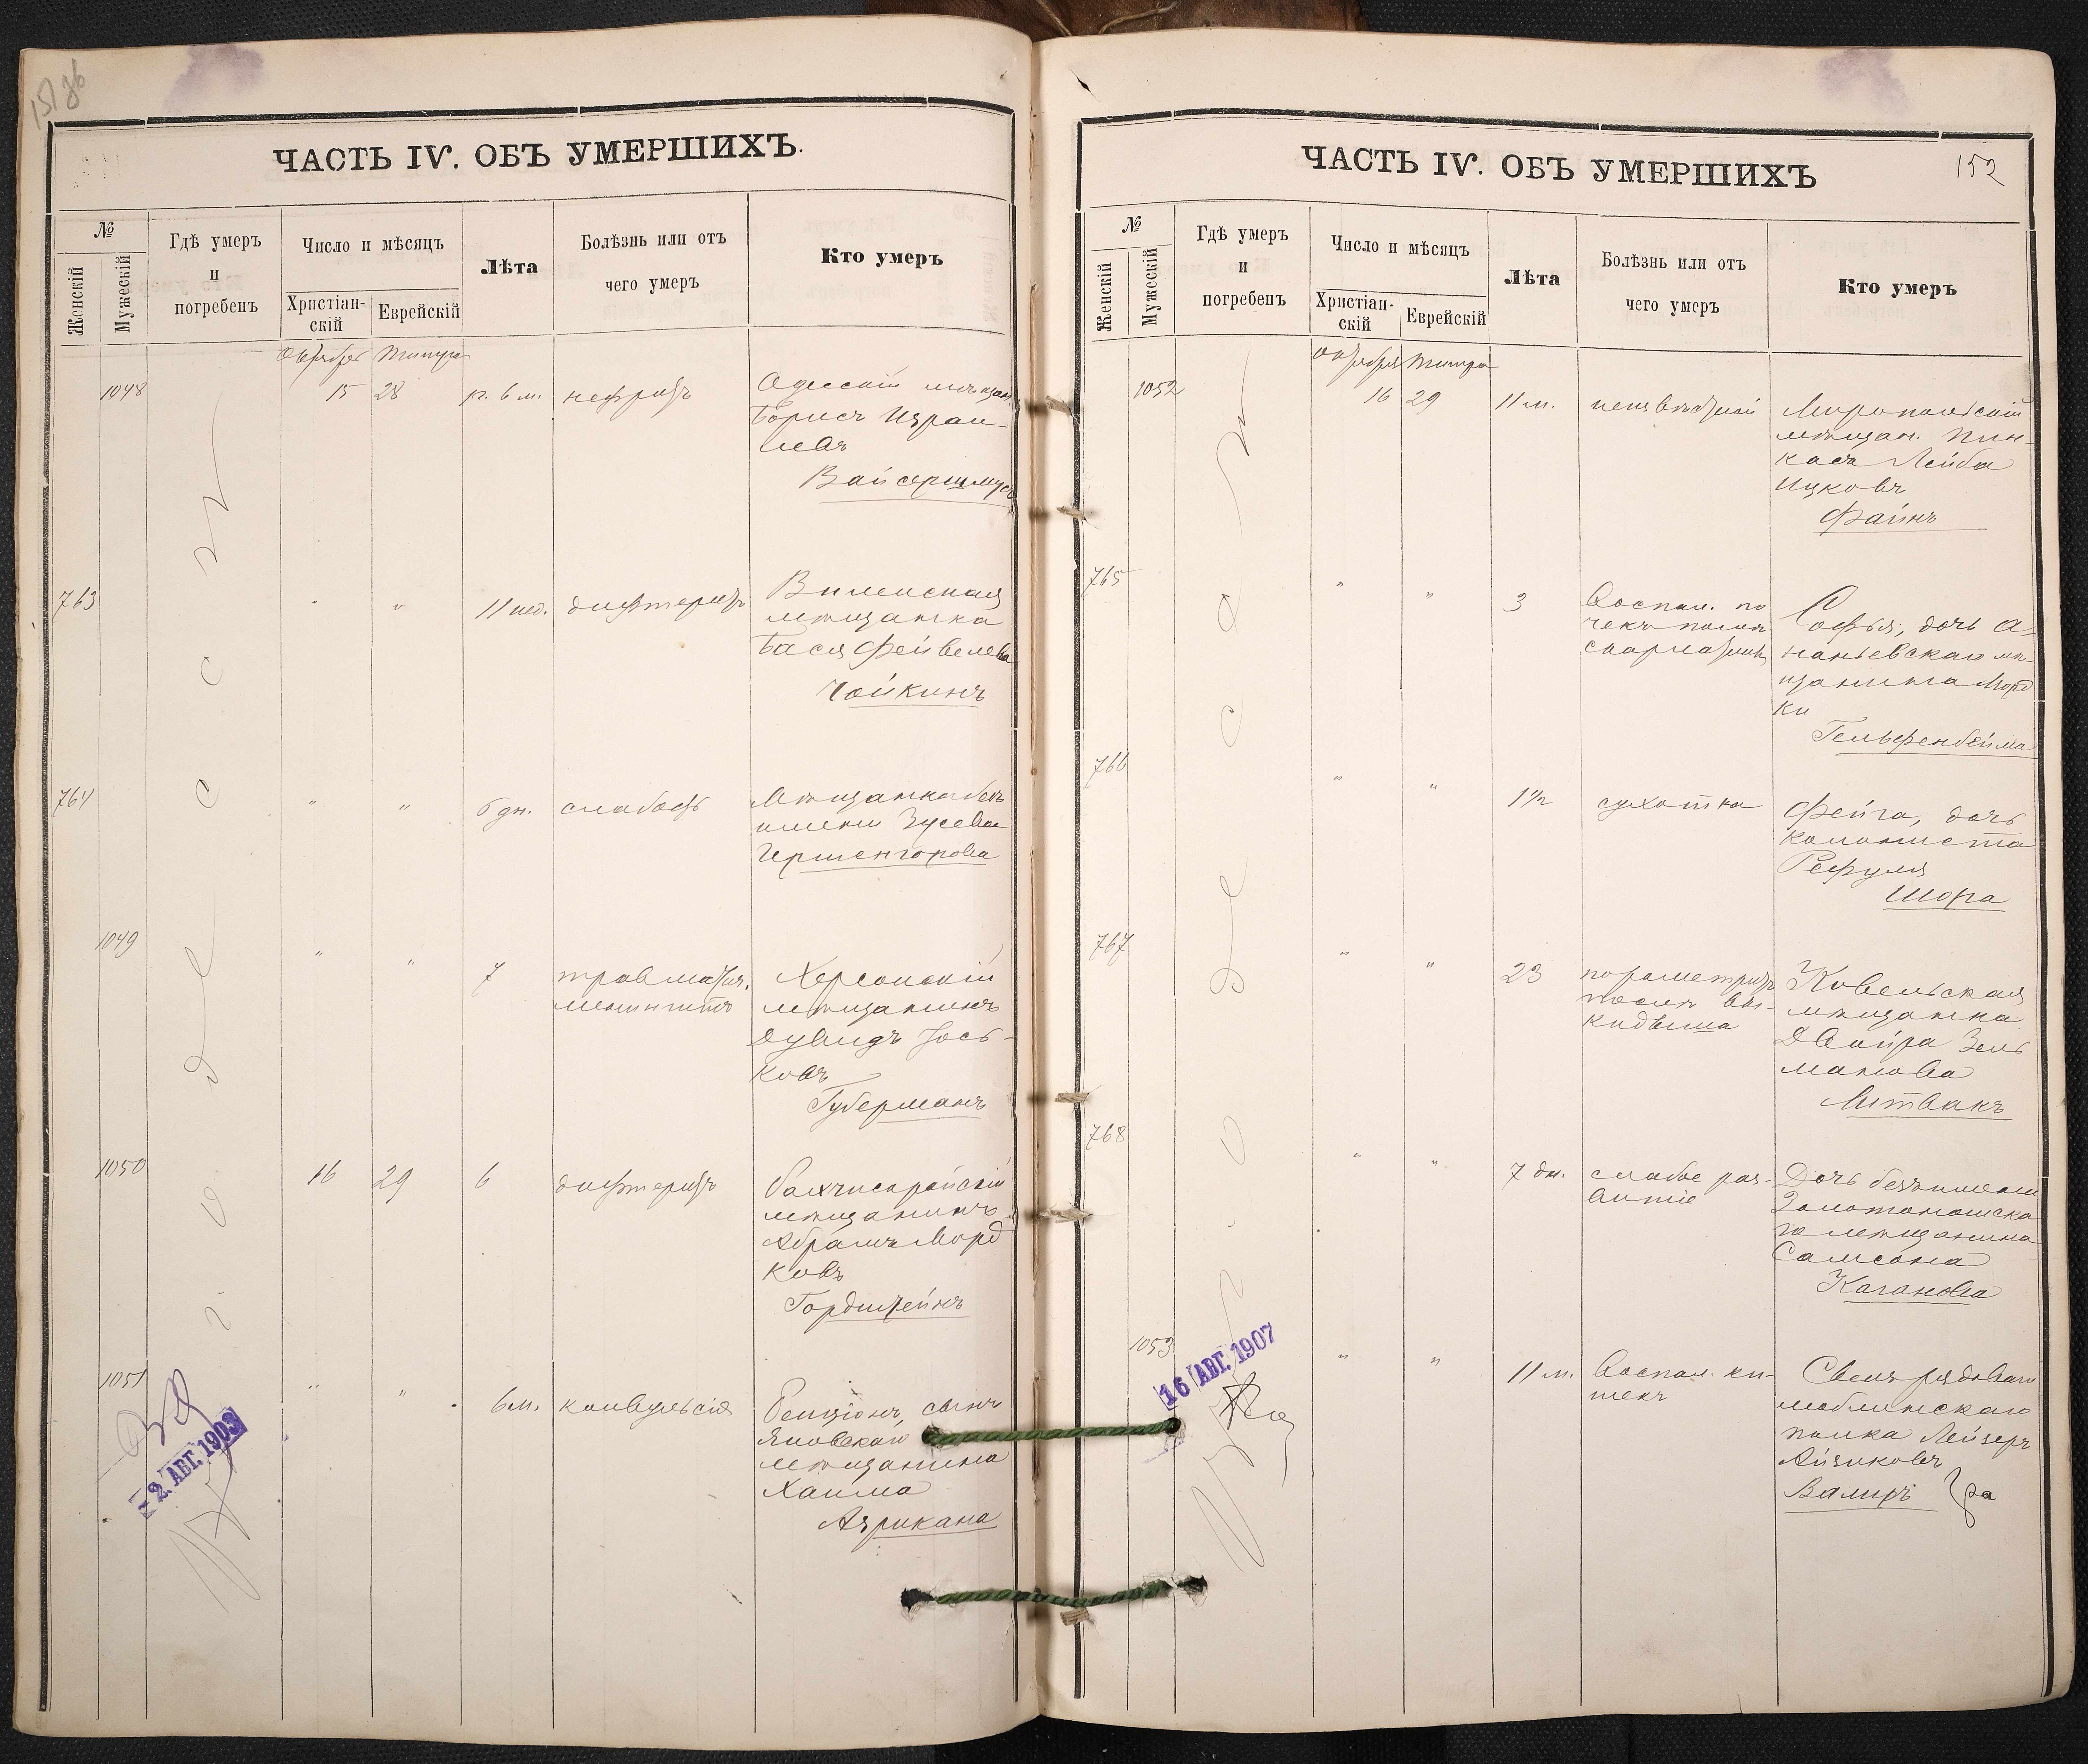 151 об
ЧАСТЬ IV. ОБЪ УМЕРШИХЪ.
№
Женскій
Мужескій
Гдѣ умеръ
и
погребенъ
Число и мѣсяцъ
Христіан-
скій
Еврейскій
Лѣта
Болѣзнь или отъ
чего умеръ
Кто умеръ
Октября Тишри
1048 15 28 6 м. нефритъ Одесскій мѣщан.
Борисъ Израи-
левъ
763 " " 11 нед. дифтеритъ Виленская
мѣщанка
Бася Фейвелева
Чойкинъ
764 " " 6 дн. слабость Мѣщанка безъ
имени Зусева
Гершенгорова
1049 " " 7 травматич.
менингитъ
Херсонскій
мѣщанинъ
Дувидъ Іось-
ковъ
Губерманъ
1050 16 29 6 дифтеритъ Бахчисарайскій
мѣщанинъ
Абрамъ Морд
ковъ
Гордштейнъ
1051 " " 6 м. конвульсія Бенціонъ, сынъ
Яновскаго
мѣщанина
Хаима
Азрикана
г. Одесса
- 2. АВГ. 1903
152
ЧАСТЬ IV. ОБЪ УМЕРШИХЪ
№
Женскій
Мужескій
Гдѣ умеръ
и
погребенъ
Число и мѣсяцъ
Христіан-
скій
Еврейскій
Лѣта
Болѣзнь или отъ
чего умеръ
Кто умеръ
Октября Тишри
1052 16 29 11 м. неизвѣстной Миропольскій
мѣщан. Пин-
касъ Лейба
Ицковъ
Файнъ
765 " " 3 Воспал. по
чекъ послѣ
скарлатины
Софья, дочь А-
наньевскаго мѣ-
щанина Морд
ки
Гельфенбейма
766 " " 1½ сухотка Фейга, дочь
колониста
Рефуля
Шора
767 " " 23 параметритъ
послѣ вы-
кидыша
Ковельская
мѣщанка
Двойра Зель
манова
Литвакъ
768 " " 7 дн. слабое раз-
витіе
Дочь безъ имени
Золотоношска
го мѣщанина
Самсона
Каганова
1053 " " 11 м. Воспал. ки-
шекъ
Сынъ рядоваго
люблинскаго
полка Лейзеръ
Айзиковъ
Валиръ
г. Одесса
16 АВГ. 1907